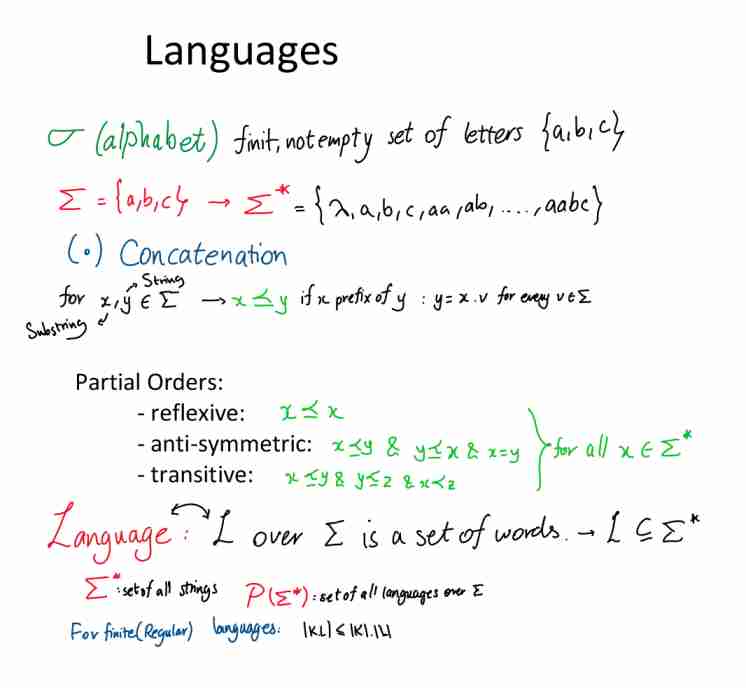 Languages
σ (alphabet) finit, not empty set of letters {a,b,c}
Σ = {a,b,c} → Σ* = {λ, a, b, c, aa, ab, ...., aabc}
(•) Concatenation
String
for x,y ∈ Σ → x ≼ y if x prefix of y : y = x . v for every v ∈ Σ
Substring
Partial Orders:
- reflexive: x ≼ x
- anti-symmetric: x ≼ y & y ≼ x & x=y
- transitive: x ≼ y & y ≼ z & x ≺ z
for all x ∈ Σ*
Language : L over Σ is a set of words. → L ⊆ Σ*
Σ* : set of all strings P(Σ*) : set of all languages over Σ
For finite (Regular) languages: |KL| ≤ |K|.|L|